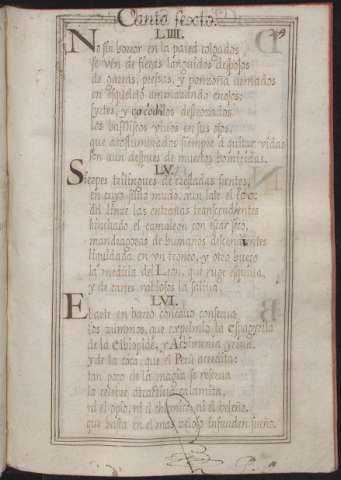 Canto sexto.
249
LIIII.
No sin horror en la pared colgados
se ven de fieras languidos despojos
de garras, pressas, y ponzoña armados
en esqueleto amenazando enojos:
sustes, y cocodrilos destrozados
los basiliscos vivos en sus ojos,
que acostumbrados siempre a quitar vidas
son aun despues de muertos homicidas.
LV.
Sierpes trilingues de crestadas frentes,
en cuyo silvo mudo aun late el
del lince las entrañas transcendentes
hinchado el camaleon con estar seco,
mandragoras de humanos descendientes
liquidada en vn tronco, y otro hueco
la medula del Leon, que ruge esquiva,
y de canes rabiosos la saliva.
LVI.
Ebarte en barro concavo conserva
los zummos, que exprimio la espagyrica
de la Ethiopide, y Achimenia yerva,
y de la coca, que el Perù acredita:
tan poco de la magia se reserva
la celebre atractiva calamita,
ni el opio, ni el chamico, ni el beleño,
que hasta en el mas zeloso infunden sueño.